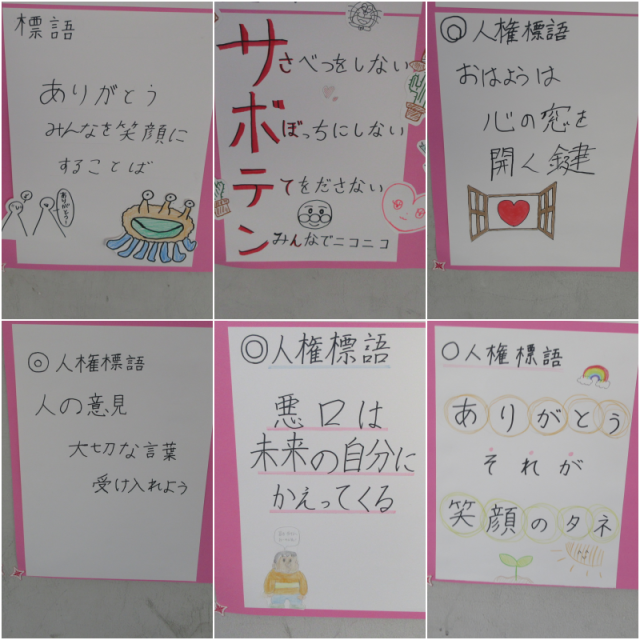 標語
ありがとう
みんなを笑顔に
することば
ありがとう
サさべつをしない
ボぼっちにしない
テてをださない
ンみんなでニコニコ
◎人権標語
おはようは
心の窓を
開く鍵
◎人権標語
人の意見
大切な言葉
受け入れよう
◎人権標語
悪口は
未来の自分に
かえってくる
○人権標語
ありがとう
それが
笑顔のタネ